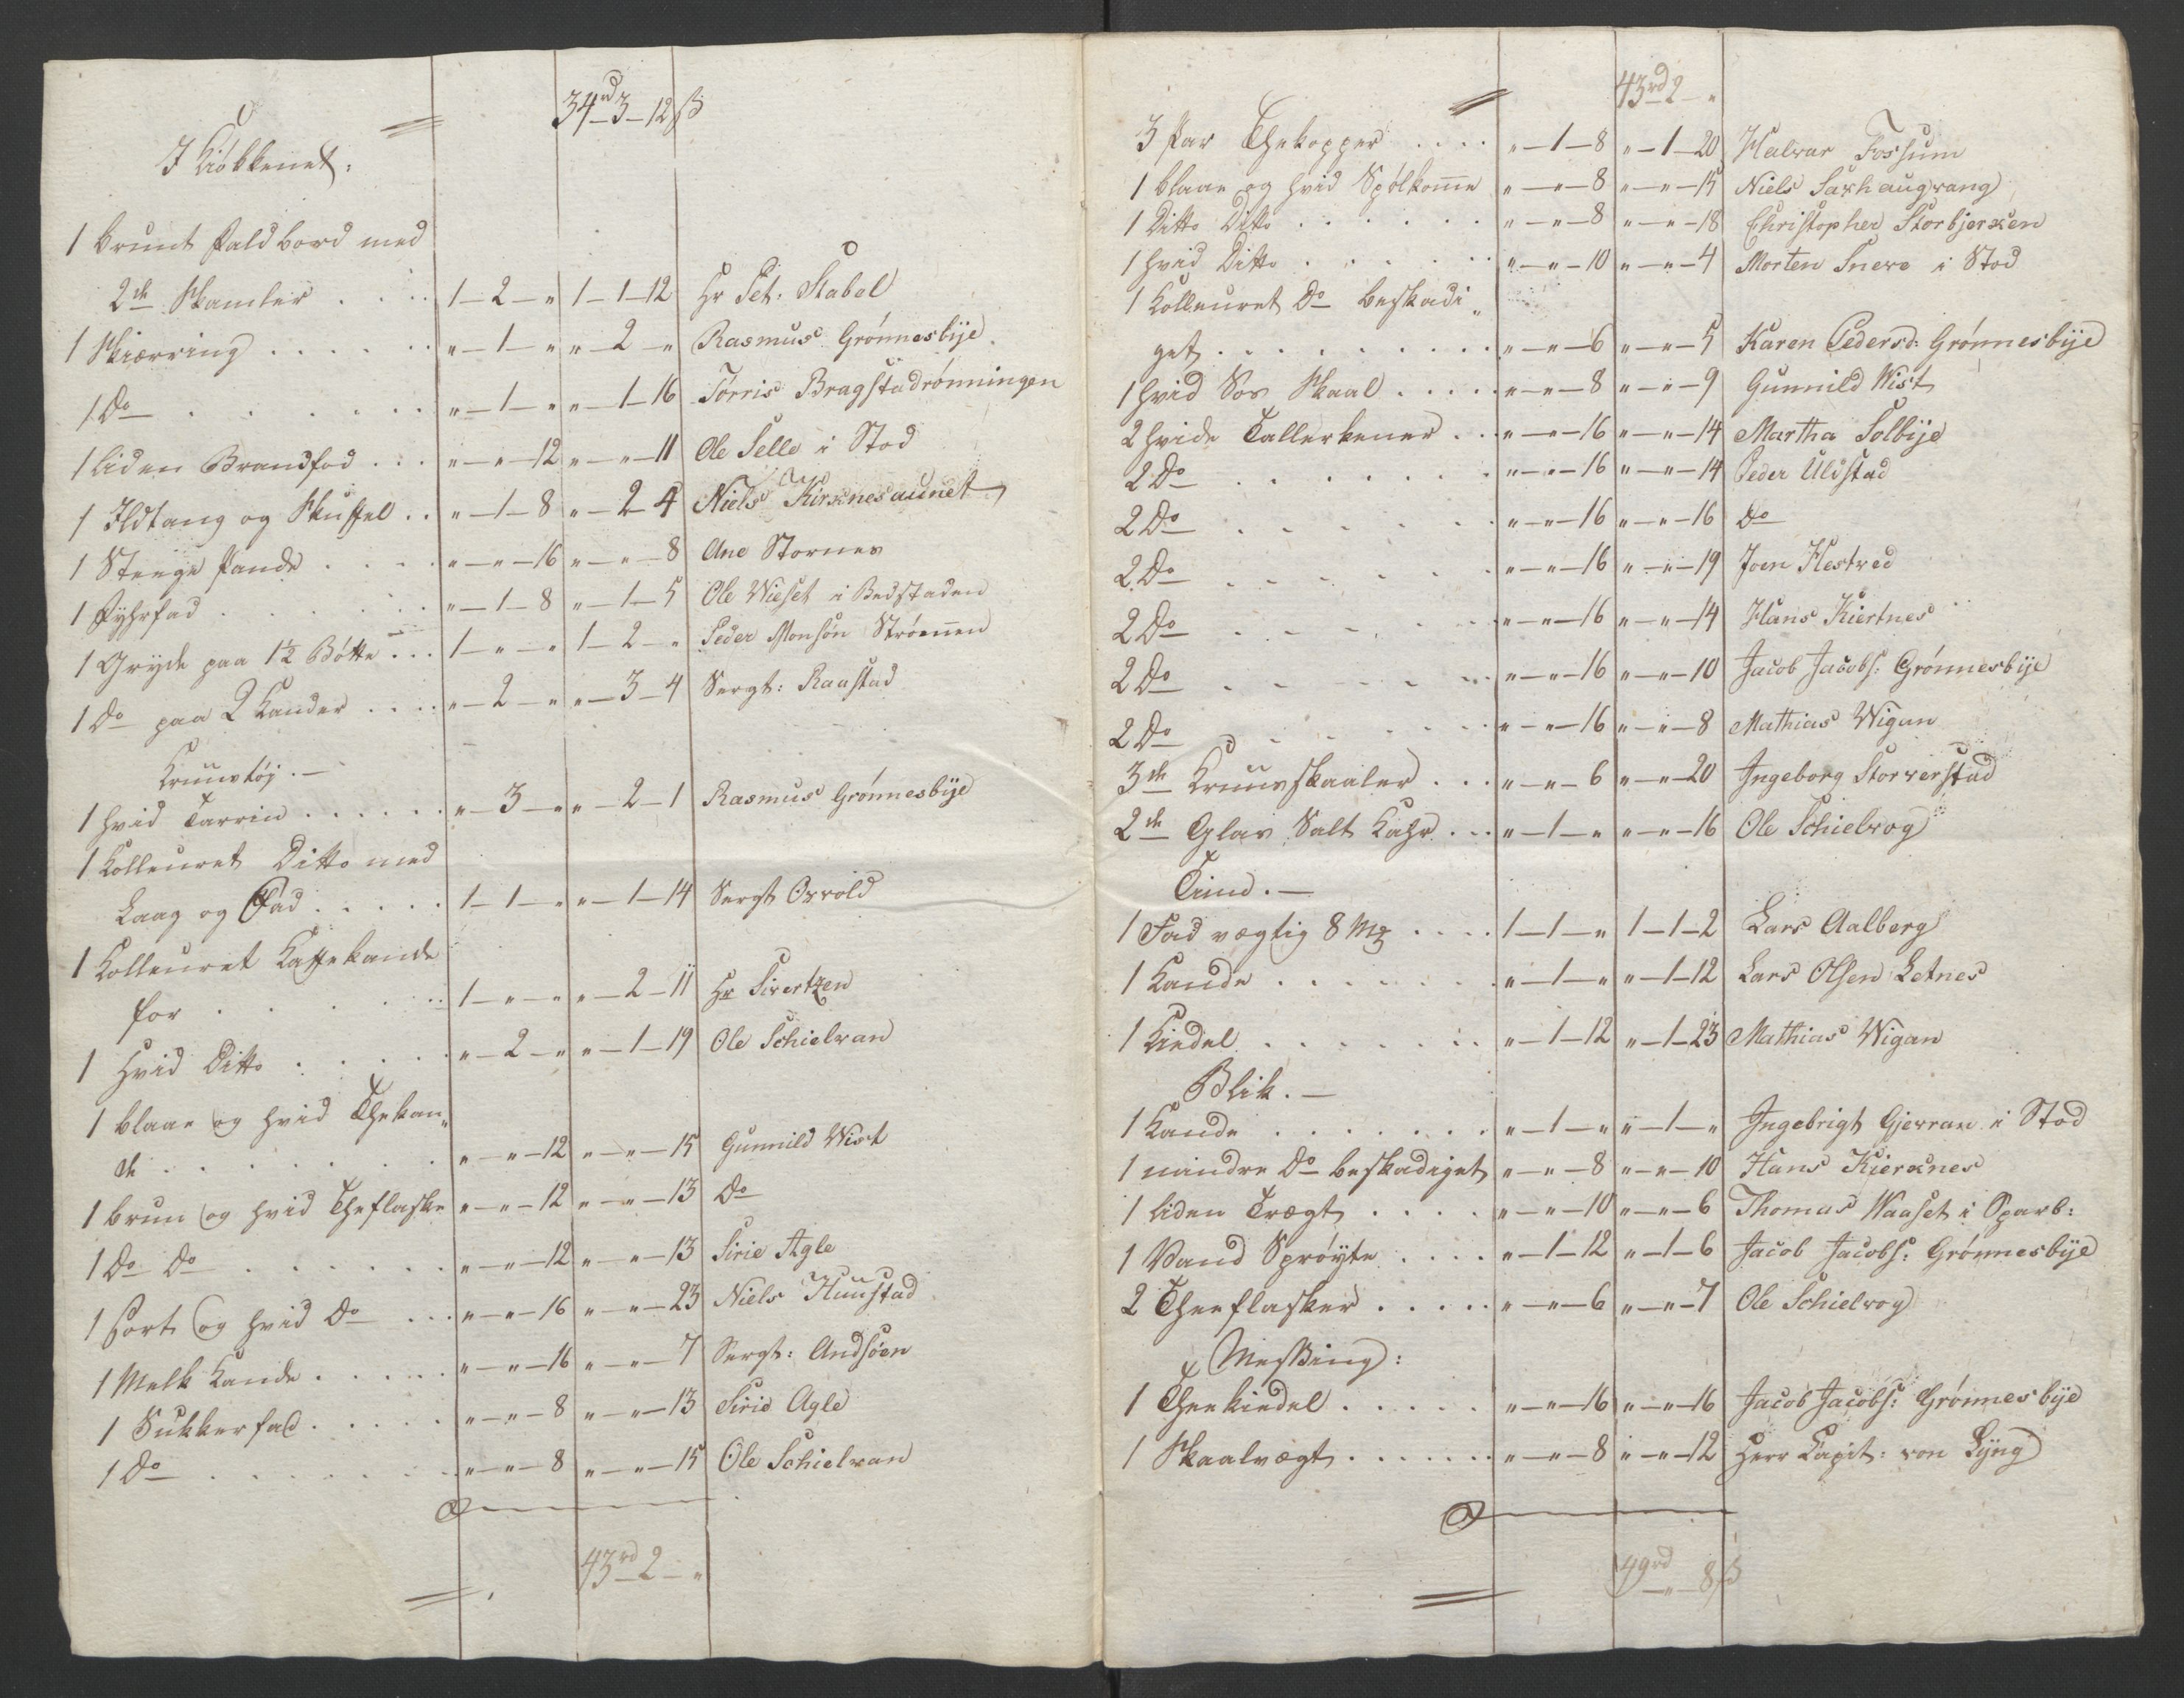 34rd 3 - 12 ß
I Kiøkkenet:
1 brunt Fald bord med
2de Skamler . . . 1 - 2 - " 1 - 1 - 12 Hr Pet: Stabel
1 Skiærring . . . . . " - 1 - " " - 2 - " Rasmus Grønnesbÿe.
1 Do . . . . . . " - 1 - " " - 1 - 16 Tørris Bragstadrønningen
1 liden Brandfod . . . " - " - 12 " - " - 11 Ole Selle i Stod
1 Ildtang og Skuffel . . " - 1 - 8 " - 2 - 4 Niels Kirxnesaunet
1 Steege Pande . . . . " - " - 16 " - " - 8 Ane Stornes
1 Fyhrfad . . . . . . " - 1 - 8 " - 1 - 5 Ole Wieset i Bedstaden
1 Gryde paa 1½ Bøtte . . . 1 - " - " 1 - 2 - " Peder Monsøn Strømmen
1 Do paa 2 Kander . . . . " - 2 - " " - 3 - 4 Sergt: Raastad
Kruustøj. -
1 hvid Tarrin . . . . . . " - 3 - " " - 2 - 1 Rasmus Grønnesbÿe
1 Kolleuret Ditto med
Laag og Fad . . . . . 1 - 1 - " " - 1 - 14 Sergt Oxvold
1 Kolleuret Kaffekande
for . . . . . . 1 - " - " " - 2 - 11 Hr Sivertzen
1 Hvid Ditto . . . . . " - 2 - " " - 1 - 19 Ole Schielvan
1 blaae og hvid Thekan„
de . . . . . . . . " - " - 12 " - " - 15 Gunnild Wist
1 brun og hvid Theflaske " - " - 12 " - " - 13 Do
1 Do Do . . . . . . " - " - 12 " - " - 13 Sirie Agle
1 sort og hvid Do . . . " - " - 16 " - " - 23 Niels Huustad
1 Melk Kande . . . . . " - " - 16 " - " - 7 Sergt: Andsøen
1 Sukkerfad . . . . . " - " - 8 " - " - 13 Sirie Agle
1 Do . . . . . . . . " - " - 8 " - " - 15 Ole Schielvan
43rd 2 - "
43rd 2 - "
3 Par Thekopper . . . . " - 1 - 8 " - 1 - 20 Halvar Fossum
1 blaae og hvid Spølkom̅e " - " - 8 " - " - 15 Niels Saxhaugvang
1 Ditto Ditto . . . . . . " - " - 8 " - " - 18 Christopher Storbjerxen
1 hvid Ditto . . . . . . " - " - 10 " - " - 4 Morten Sneve i Stod
1 Kolleuret Do beskadi„
get . . . . . . . . " - " - 6 " - " - 5 Karen Pedersd: Grønnesbÿe
1 hvid Sos Skaal . . . . . " - " - 8 " - " - 9 Gunnild Wist
2 hvide Tallerkener . . . " - " - 16 " - " - 14 Martha Solbÿe
2 Do . . . . . . " - " - 16 " - " - 14 Peder Uldstad
2 Do . . . . . . " - " - 16 " - " - 16 Do
2 Do . . . . . . " - " - 16 " - " - 19 Joen Flestved
2 Do . . . . . . " - " - 16 " - " - 14 Hans Kiertnes
2 Do . . . . . . " - " - 16 " - " - 10 Jacob Jacobs: Grønnesbÿe
2 Do . . . . . . " - " - 16 " - " - 8 Mathias Wigan
3de Kruusskaaler . . . " - " - 6 " - " - 20 Ingeborg Storverstad
2de Glas Salt Kahr . . . " - 1 - " " - " - 16 Ole Schielvog
Tind. -
1 Fad vægtig 8 Mk . . . . 1 - 1 - " 1 - 1 - 2 Lars Aalberg
1 Kande . . . . . . . " - 1 - " " - 1 - 12 Lars Olsen Letnes
1 Kiedel . . . . . . . " - 1 - 12 " - 1 - 23 Mathias Wigan
Blik. -
1 Kande . . . . . . . " - 1 - " " - 1 - " Ingebrigt Gjervan i Stod
1 mindre Do beskadiget " - " - 8 " - " - 10 Hans Kierxnes
1 liden Trægt . . . . " - " - 10 " - " - 6 Thomas Waaset i Sparb:
1 Vand Sprøyte . . . . " - 1 - 12 " - 1 - 6 Jacob Jacobs: Grønnesbÿe
2 Theeflasker . . . . . " - " - 6 " - " - 7 Ole Schielvog
Messing:
1 Theekiedel . . . . . " - " - 16 " - " - 16 Jacob Jacobs: Grønnesbÿe
1 Skaalvægt . . . . . . . " - " - 8 " - " - 12 Herr Capit: von Sÿng
49rd " - 8 ß